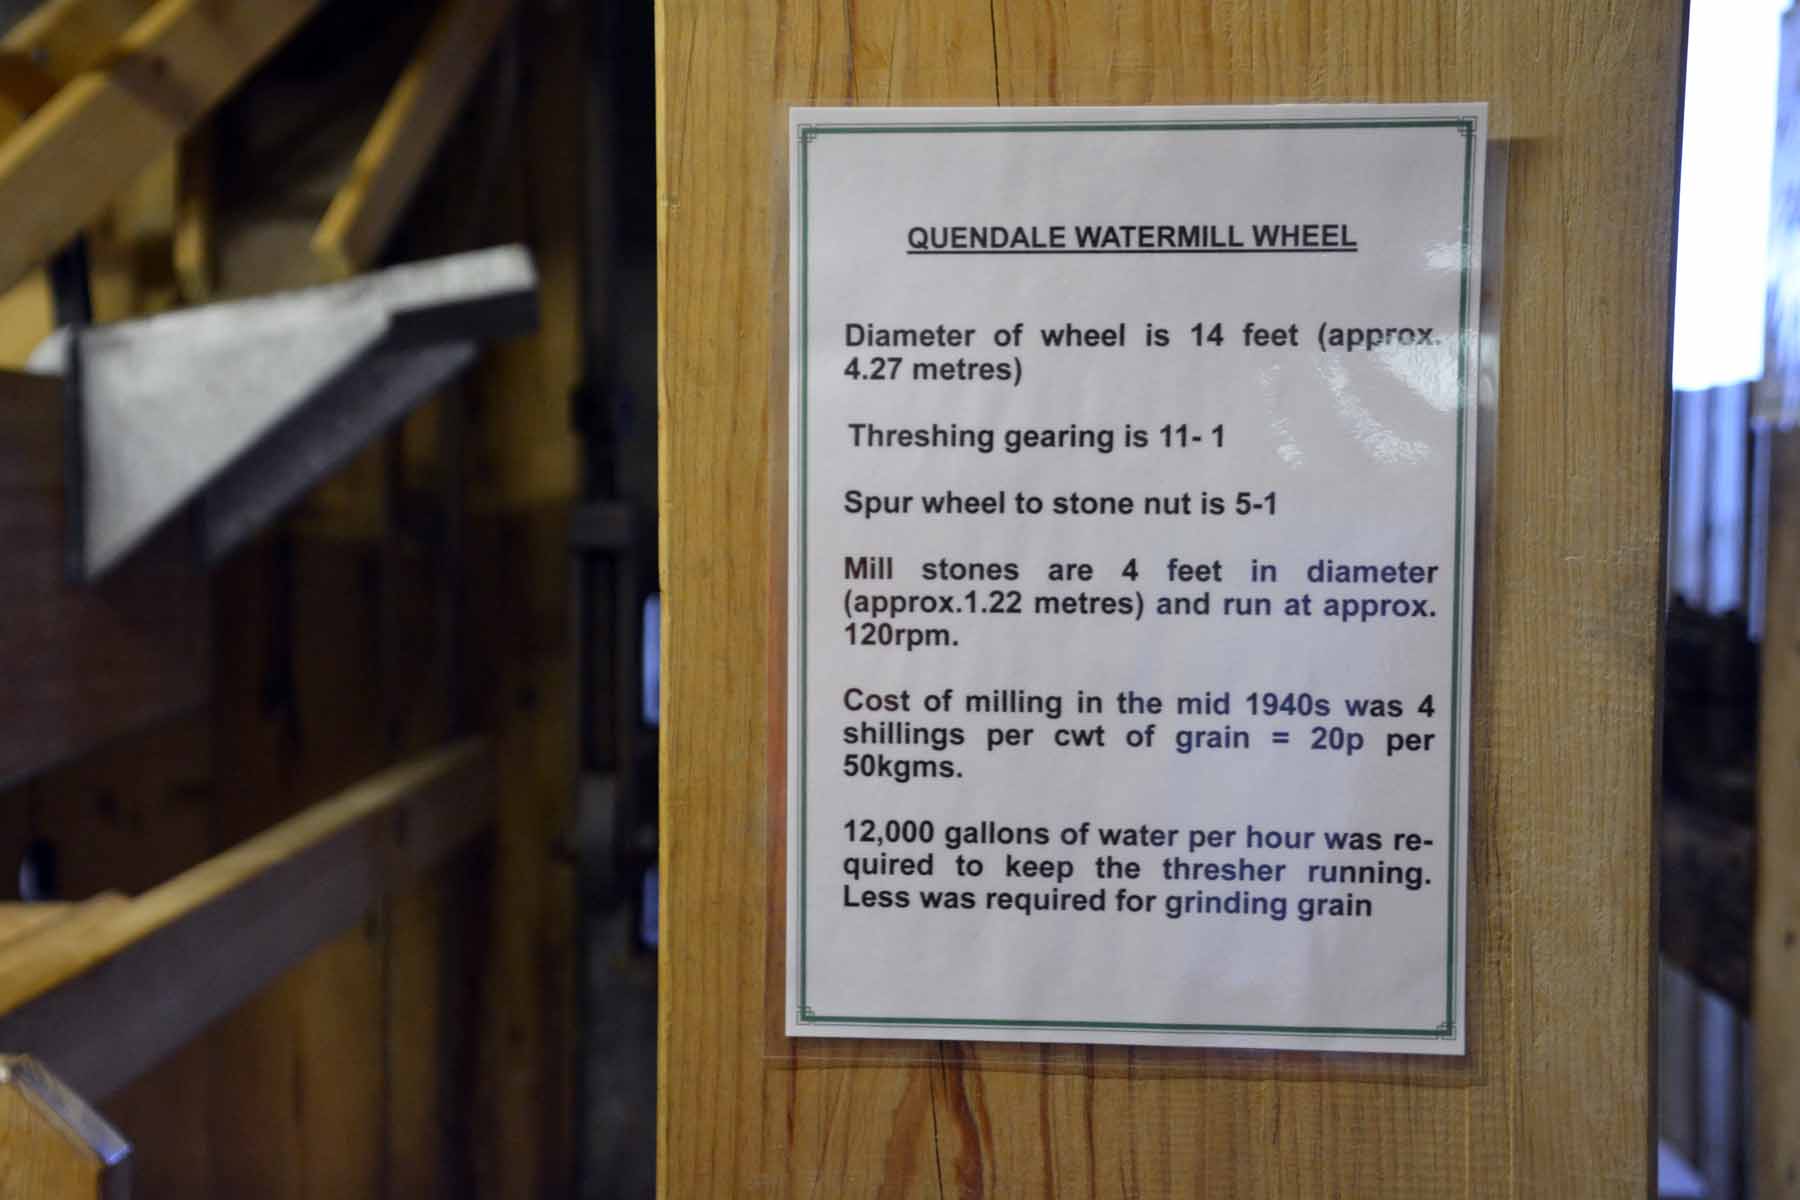 QUENDALE WATERMILL WHEEL
Diameter of wheel is 14 feet (approx.
4.27 metres)
Threshing gearing is 11- 1
Spur wheel to stone nut is 5-1
Mill stones are 4 feet in diameter
(approx.1.22 metres) and run at approx.
120rpm.
Cost of milling in the mid 1940s was 4
shillings per cwt of grain = 20p per
50kgms.
12,000 gallons of water per hour was re-
quired to keep the thresher running.
Less was required for grinding grain